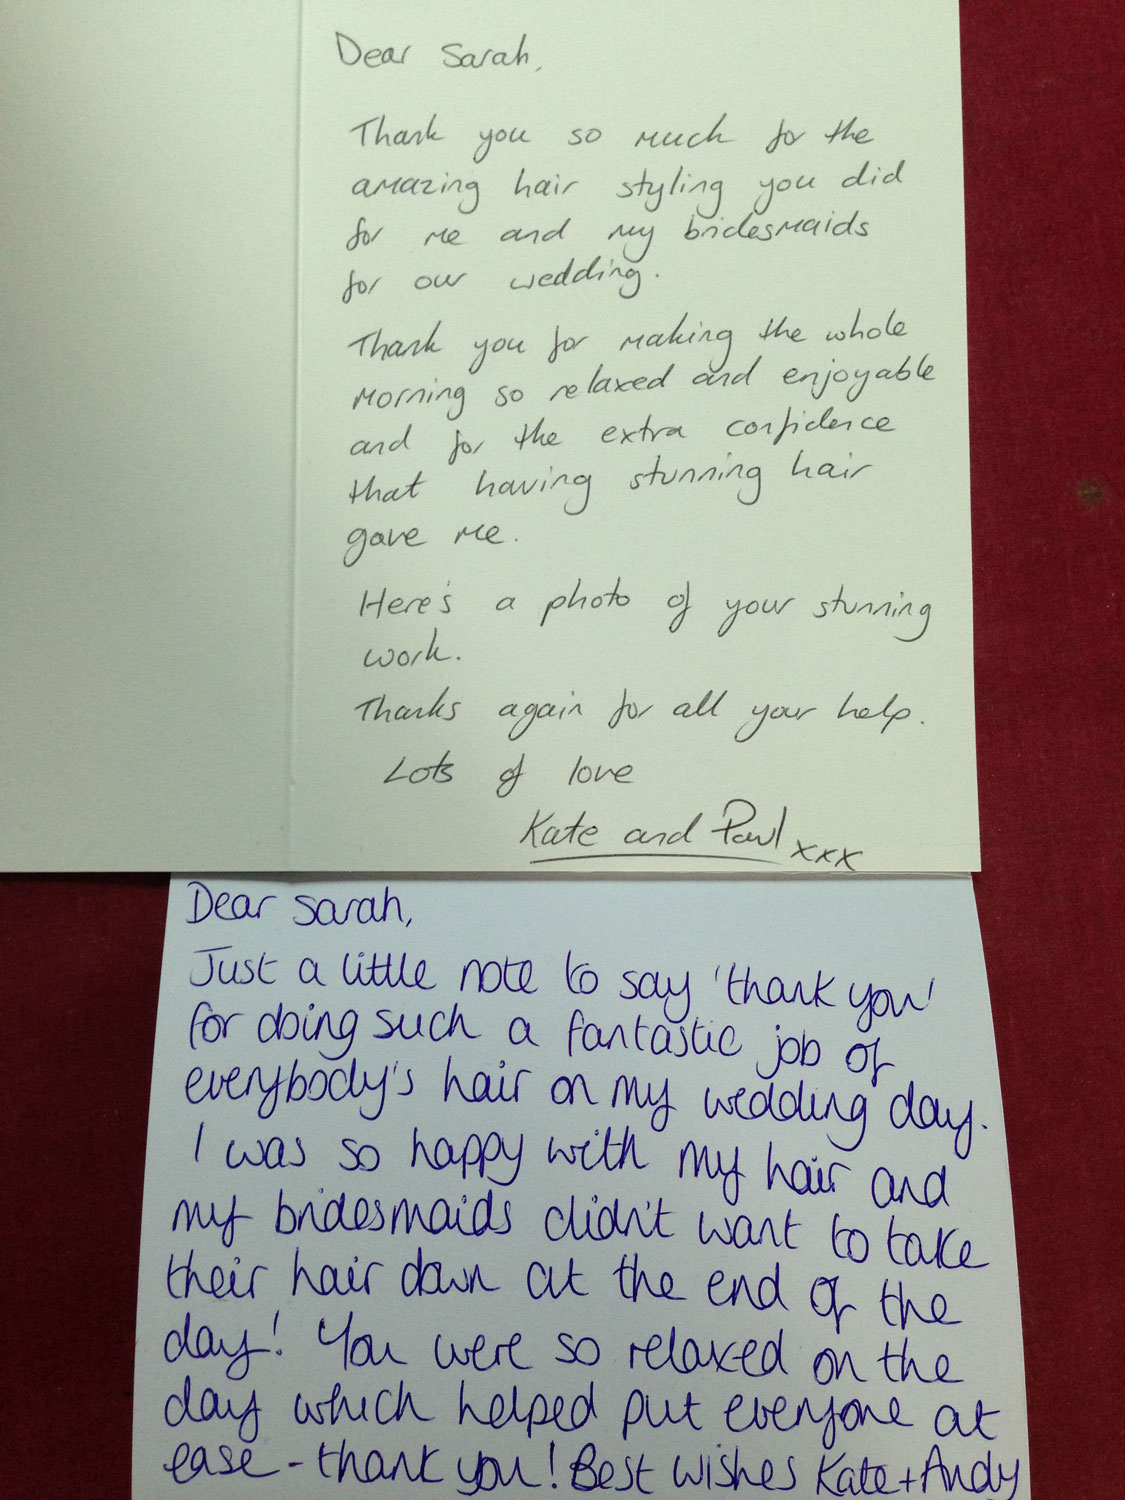 Dear Sarah,
Thank you so much for the
amazing hair styling you did
for me and my bridesmaids
for our wedding.
Thank you for making the whole
morning so relaxed and enjoyable
and for the extra confidence
that having stunning hair
gave me.
Here's a photo of your stunning
work.
Thanks again for all your help.
Lots of love
Kate and Paul xxx
Dear Sarah,
Just a little note to say 'thank you'
for doing such a fantastic job of
everybody's hair on my wedding day.
I was so happy with my hair and
my bridesmaids didn't want to take
their hair down at the end of the
day! You were so relaxed on the
day which helped put everyone at
ease - thank you! Best wishes Kate + Andy